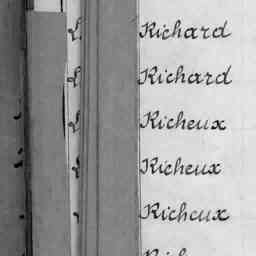 Richard
Richard
Richeux
Richeux
Richeux